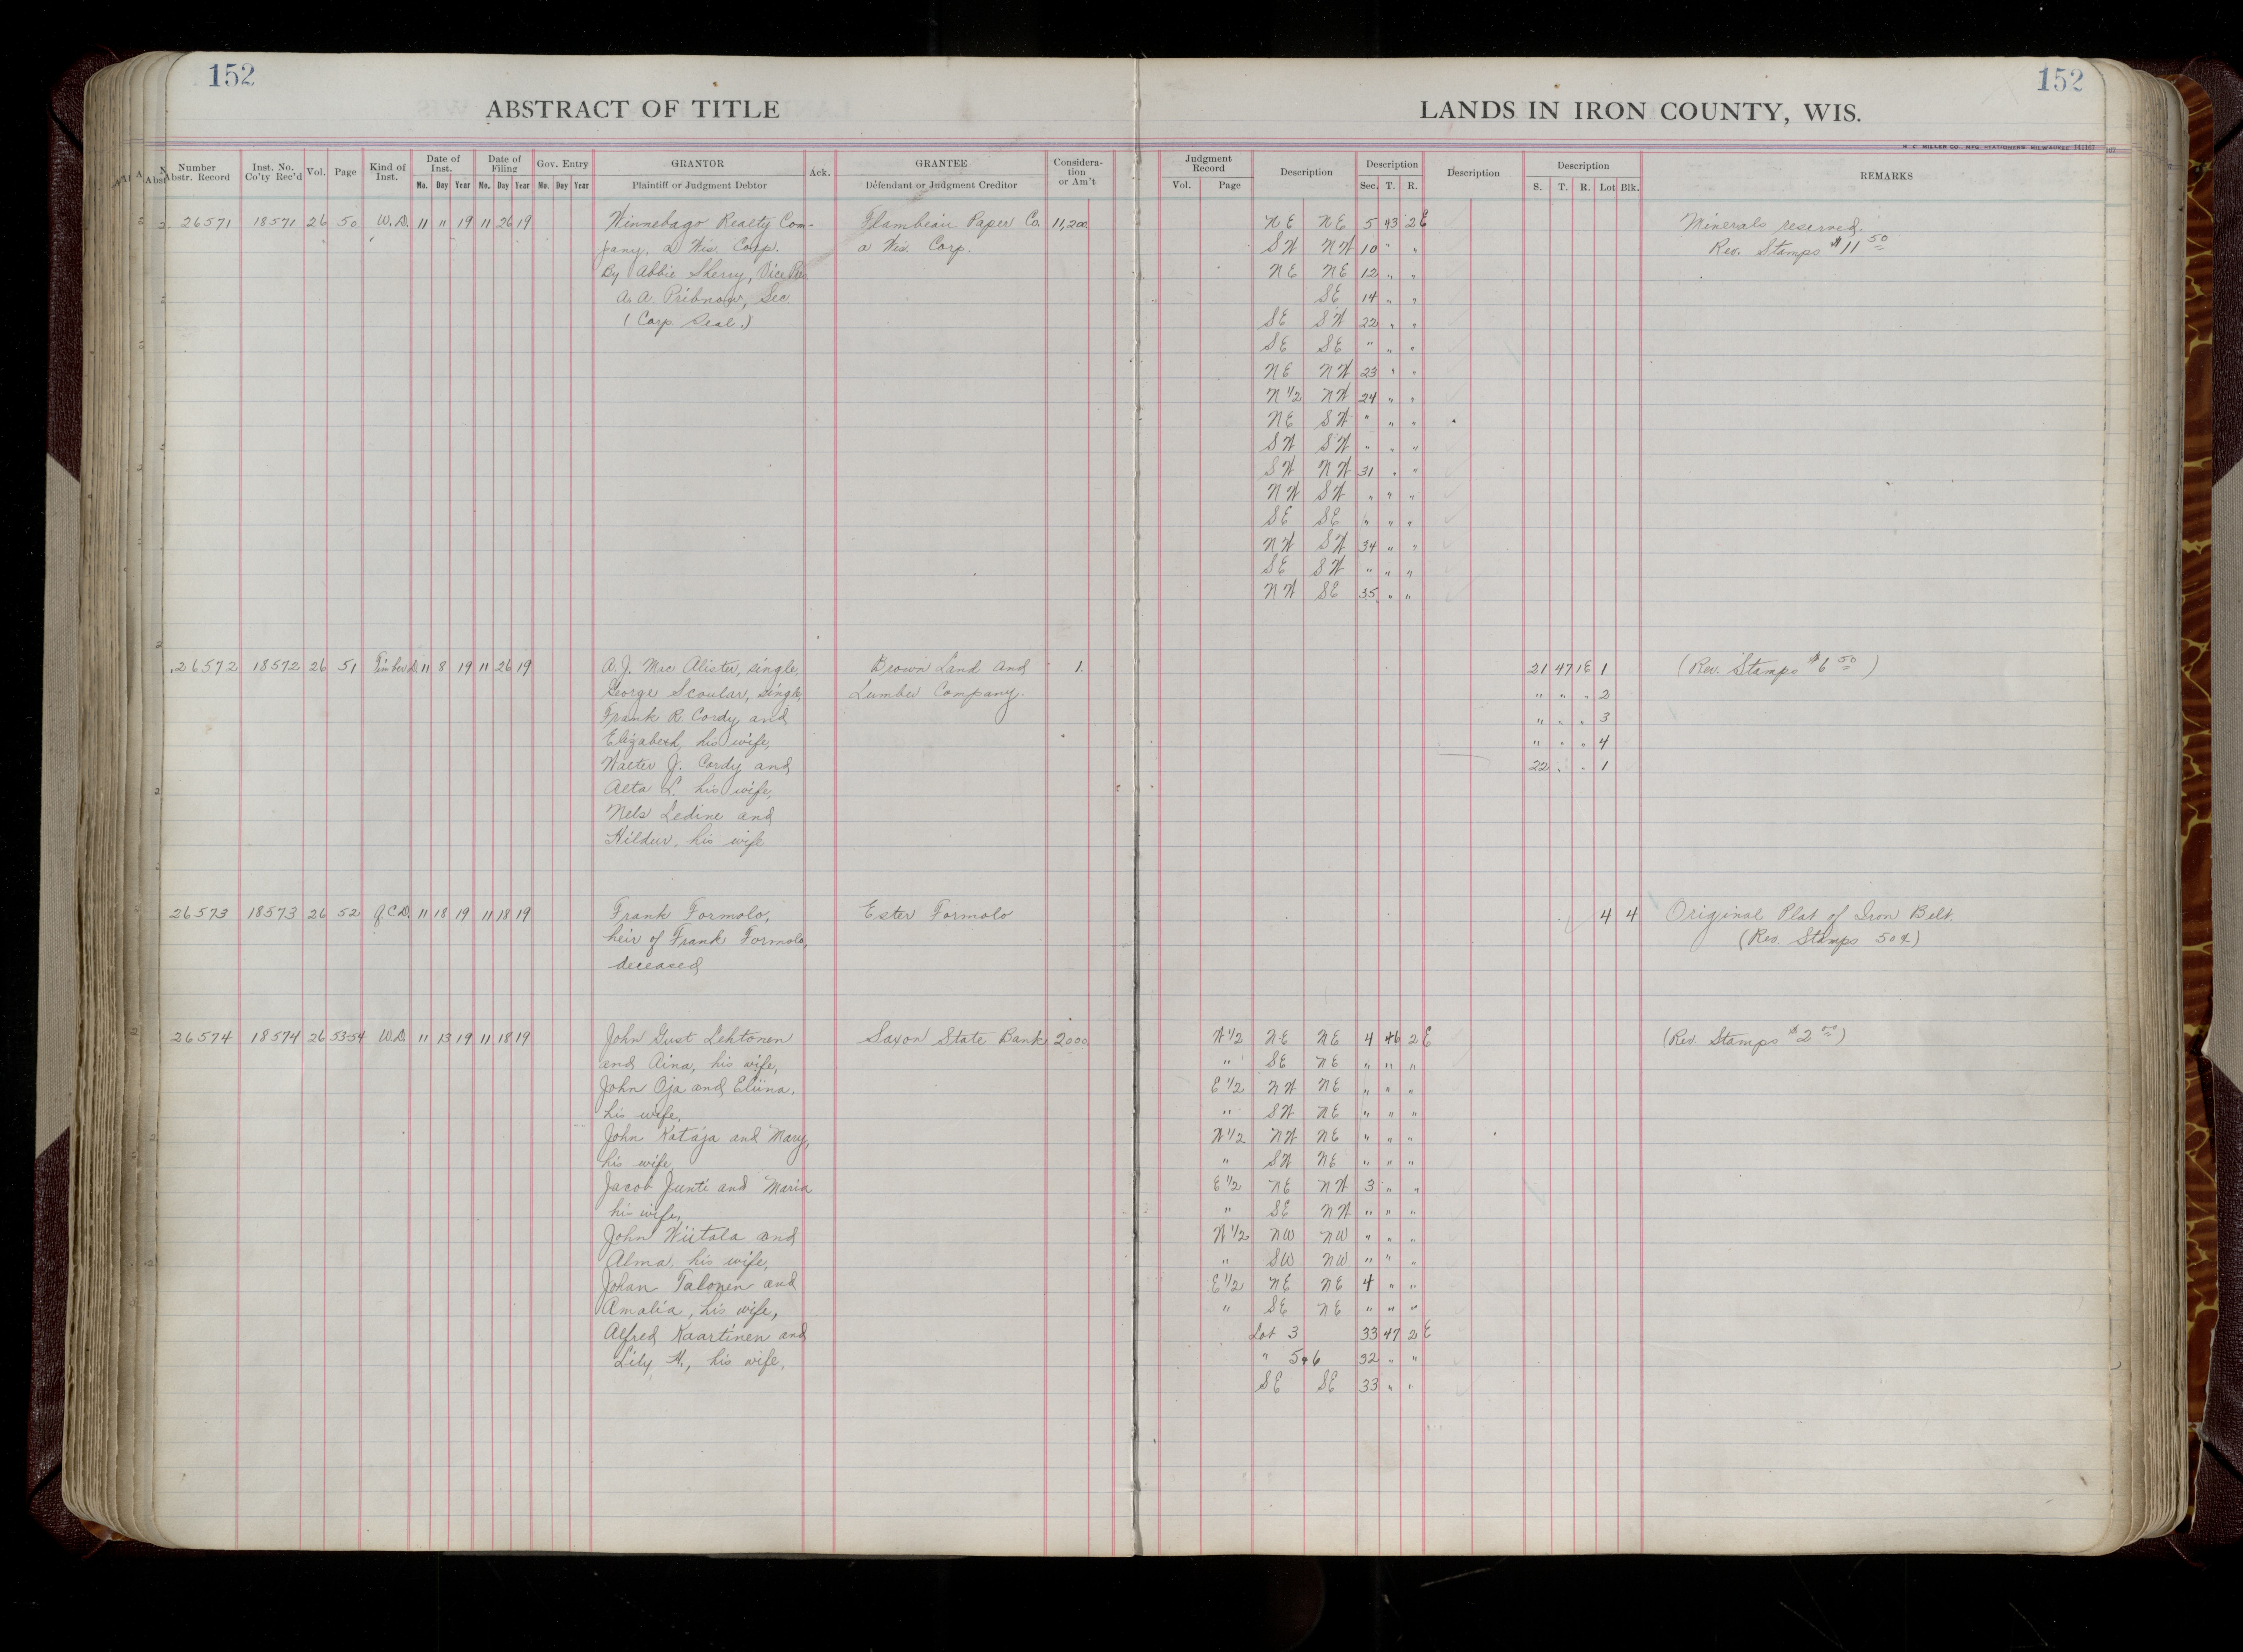 152
152
ABSTRACT OF TITLE
LANDS IN IRON COUNTY, WIS.
H. C. MILLER CO., MFG. STATIONERS MILWAUKEE
Number Abstr. Record Inst. No. Co'ty Rec'd Vol. Page Kind of Inst. Date of Inst. Date of Filing Gov. Entry GRANTOR Ack. GRANTEE Considera-tion or Am't Judgment Record Description Description Description Description REMARKS
Mo. Day Year Mo. Day Year Mo. Day Year Plaintiff or Judgment Debtor Defendant or Judgment Creditor Vol. Page Sec. T. R. S. T. R. Lot Blk.
26571 18571 26 50 W.D. 11 11 19 11 26 19 Winnebago Realty Com- Flambeau Paper Co. 11,200 NE NE 5 43 2 E Minerals reserved.
pany, a Wis. Corp. a Wis. Corp. SW NW 10 " " Rev. Stamps $11 50
By Abbie Sherry, Vice Pres NE NE 12 " "
A. A. Pribnow, Sec SE 14 " "
(Corp. Seal.) SE SW 22 " "
SE SE " " "
NE NW 23 " "
N 1/2 NW 24 " "
NE SW " " "
SW SW " " "
SW NW 31 " "
NW SW " " "
SE SE " " "
NW SW 34 " "
SE SW " " "
NW SE 35 " "
26572 18572 26 51 Timber D. 11 8 19 11 26 19 A. J. Mac Alister, single, Brown Land and 1. 21 47 1E 1 (Rev. Stamps $6 50)
George Scoular, single, Lumber Company. " " " 2
Frank R. Cordy and " " " 3
Elizabeth, his wife, " " " 4
Walter J. Cordy and 22 " " 1
Alta L. his wife,
Nels Ledine and
Hildur, his wife
26573 18573 26 52 Q.C.D. 11 18 19 11 18 19 Frank Formolo, Ester Formolo 4 4 Original Plat of Iron Belt.
heir of Frank Formolo, (Rev. Stamps 50¢)
deceased
26574 18574 26 53-54 W.D. 11 13 19 11 18 19 John Gust Lehtonen Saxon State Bank 2000 W 1/2 NE NE 4 46 2 E (Rev. Stamps $2 00)
and Aina, his wife, " SE NE " " "
John Oja and Eliina, E 1/2 NW NE " " "
his wife, " SW NE " " "
John Kataja and Mary, W 1/2 NW NE " " "
his wife " SW NE " " "
Jacob Junti and Maria E 1/2 NE NW 3 " "
his wife, " SE NW " " "
John Wiitala and W 1/2 NW NW " " "
Alma, his wife, " SW NW " " "
Johan Talonen and E 1/2 NE NE 4 " "
Amalia, his wife, " SE NE " " "
Alfred Kaartinen and Lot 3 33 47 2 E
Lily H., his wife, " 5+6 32 " "
SE SE 33 " "